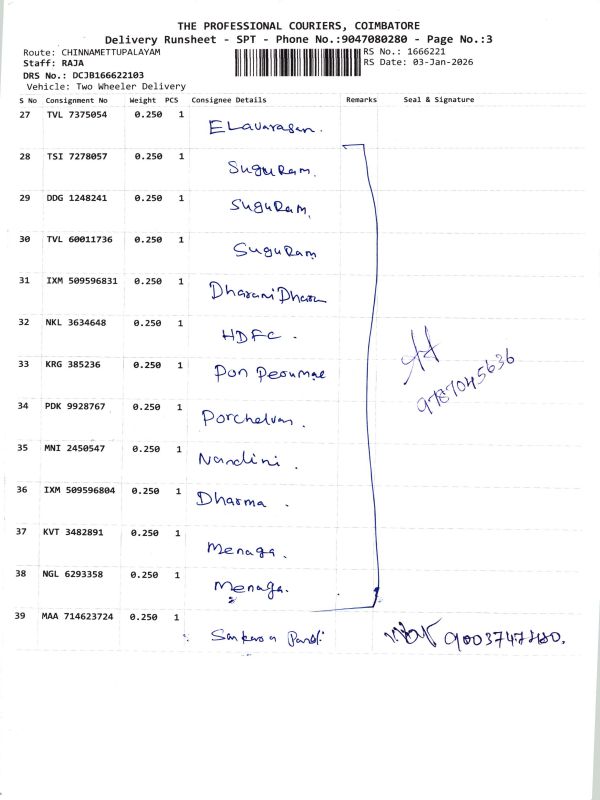 THE PROFESSIONAL COURIERS, COIMBATORE
Delivery Runsheet - SPT - Phone No.:9047080280 - Page No.:3
Route: CHINNAMETTUPALAYAM RS No.: 1666221
Staff: RAJA RS Date: 03-Jan-2026
DRS No.: DCJB166622103
Vehicle: Two Wheeler Delivery
S No Consignment No Weight PCS Consignee Details Remarks Seal & Signature
27 TVL 7375054 0.250 1 Elavarasan.
28 TSI 7278057 0.250 1 SuguRam.
29 DDG 1248241 0.250 1 SuguRam.
30 TVL 60011736 0.250 1 SuguRam
31 IXM 509596831 0.250 1 Dharani Dharan
32 NKL 3634648 0.250 1 HDFC.
33 KRG 385236 0.250 1 Pon Perumal
9787045636
34 PDK 9928767 0.250 1 Porchelvan.
35 MNI 2450547 0.250 1 Nandini.
36 IXM 509596804 0.250 1 Dharma.
37 KVT 3482891 0.250 1 Menaga.
38 NGL 6293358 0.250 1 Menaga.
39 MAA 714623724 0.250 1 Sankara Pandi